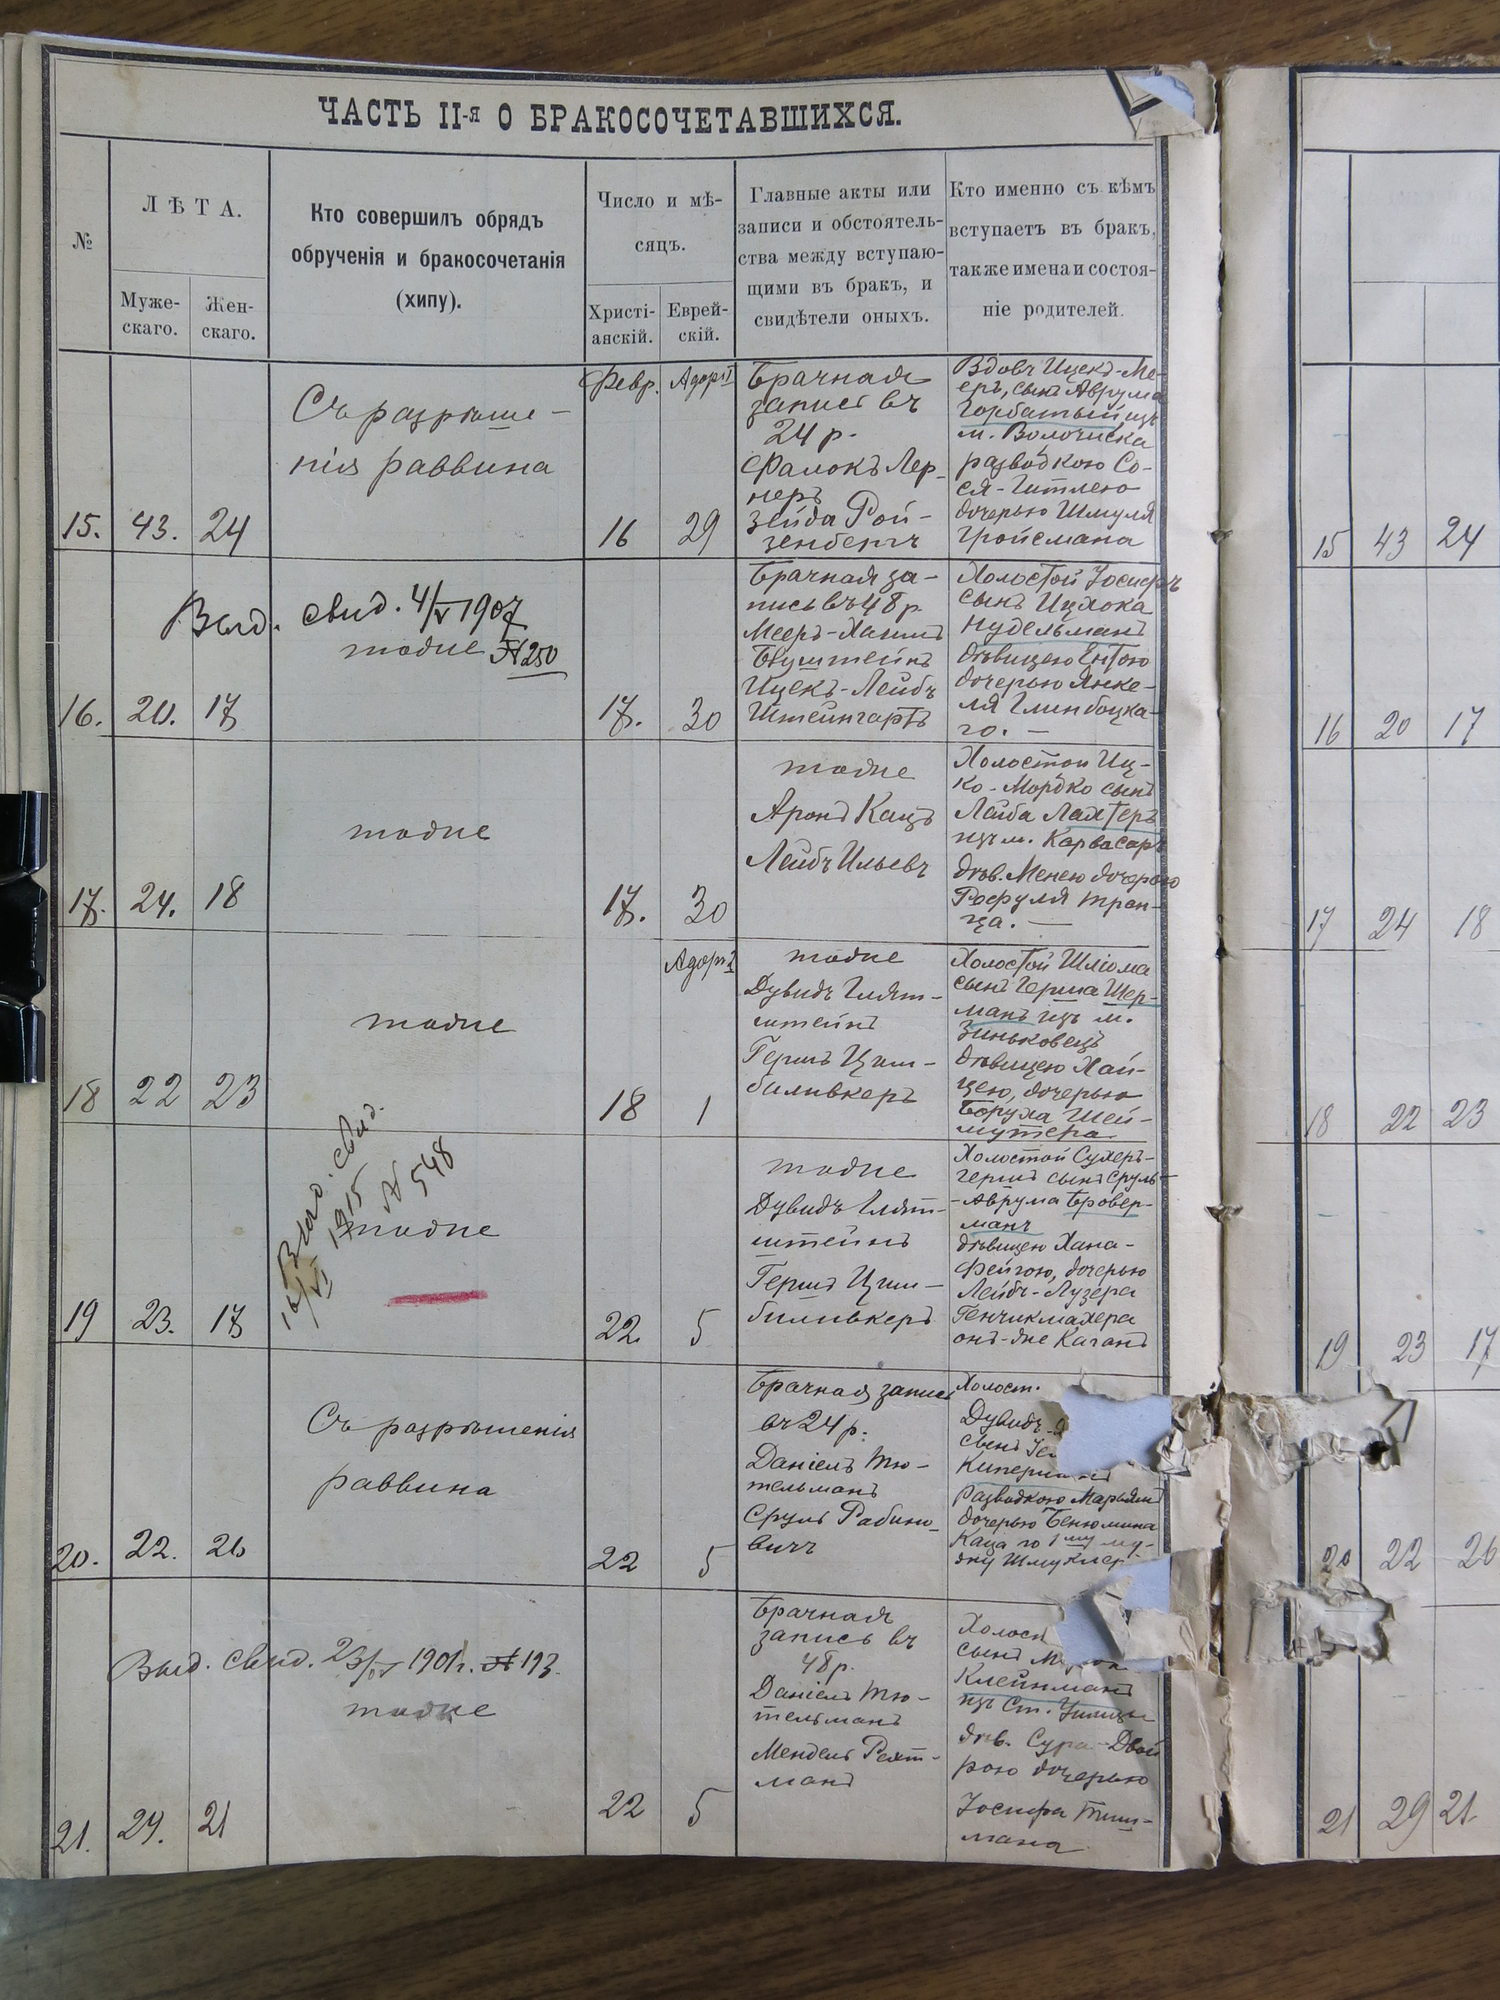 ЧАСТЬ II-я О БРАКОСОЧЕТАВШИХСЯ.
№
ЛѢТА.
Муже-
скаго.
Жен-
скаго.
Кто совершилъ обрядъ
обрученія и бракосочетанія
(хипу).
Число и мѣ-
сяцъ.
Христі-
анскій.
Еврей-
скій.
Главные акты или
записи и обстоятель-
ства между вступаю-
щими въ бракъ, и
свидѣтели оныхъ.
Кто именно съ кѣмъ
вступаетъ въ бракъ,
также имена и состоя-
ніе родителей.
15.
43.
24
Съ разрѣше-
нія раввина
Февр.
16
Адоръ I
29
Брачная
запись въ
24 р.
Фалокъ Лер-
неръ
Зейда Рой-
зенбергъ
Вдовъ Ицекъ-Ме-
еръ, сынъ Аврума
Горбатый изъ
м. Волочиска
разводкою Со-
ся-Гитлею
дочерью Шмуля
Гройсмана
16.
20.
17
Выд. свид. 4/V 1907
тоже № 250
17.
30
Брачная за-
пись въ 48 р.
Мееръ-Хаимъ
Ицекъ-Лейбъ
Штейнгартъ
Холостой Іосифъ
сынъ Ицхока
Нудельманъ
дѣвицею Ентою
дочерью Янке-
ля Глинбоцка-
го. —
17.
24.
18
тоже
17.
30
тоже
Аронъ Кацъ
Лейбъ Ильевъ
Холостой Иц-
ко-Мордко сынъ
Лейба Лахтеръ
изъ м. Карвасаръ
дѣв. Менею дочерью
Рофуля Трен-
ца. —
18
22
23
тоже
18
Адоръ II
1
тоже
Дувидъ Глят-
штейнъ
Гершъ Цим-
биливкеръ
Холостой Шлiома
сынъ Герша Шер-
манъ изъ м.
Зиньковецъ
дѣвицею Хай-
цею, дочерью
Боруха Шей-
мутера
19
23.
17
Выд. свид.
16/VI 1915
№ 548
тоже
22
5
тоже
Дувидъ Глят-
штейнъ
Гершъ Цим-
биливкеръ
Холостой Сухеръ-
Гершъ сынъ Сруль-
-Аврума Бровер-
манъ
дѣвицею Хана-
Фейгою, дочерью
Лейбъ-Лузера
Генчикмахера
онъ-же Каганъ
20.
22.
26
Съ разрѣшенія
раввина
22
5
Брачная запись
въ 24 р.
Даніель Тю-
тельманъ
Сруль Рабино-
вичъ
Холост.
Дувидъ-
сынъ
разводкою Марьям
дочерью Бенюмина
Каца по 1му му-
жу
21.
29.
21
Выд. свид. 23/IV 1901 г. № 193
тоже
22
5
Брачная
запись въ
48 р.
Даніель Тю-
тельманъ
Мендель Рехт-
манъ
Холост
сынъ
Клейнманъ
изъ Ст. Ушицы
дѣв. Сура-Двой
рою дочерью
Іосифа Тиш-
мана
15 43 24
16 20 17
17 24 18
18 22 23
19 23 17
20 22 26
21 29 21